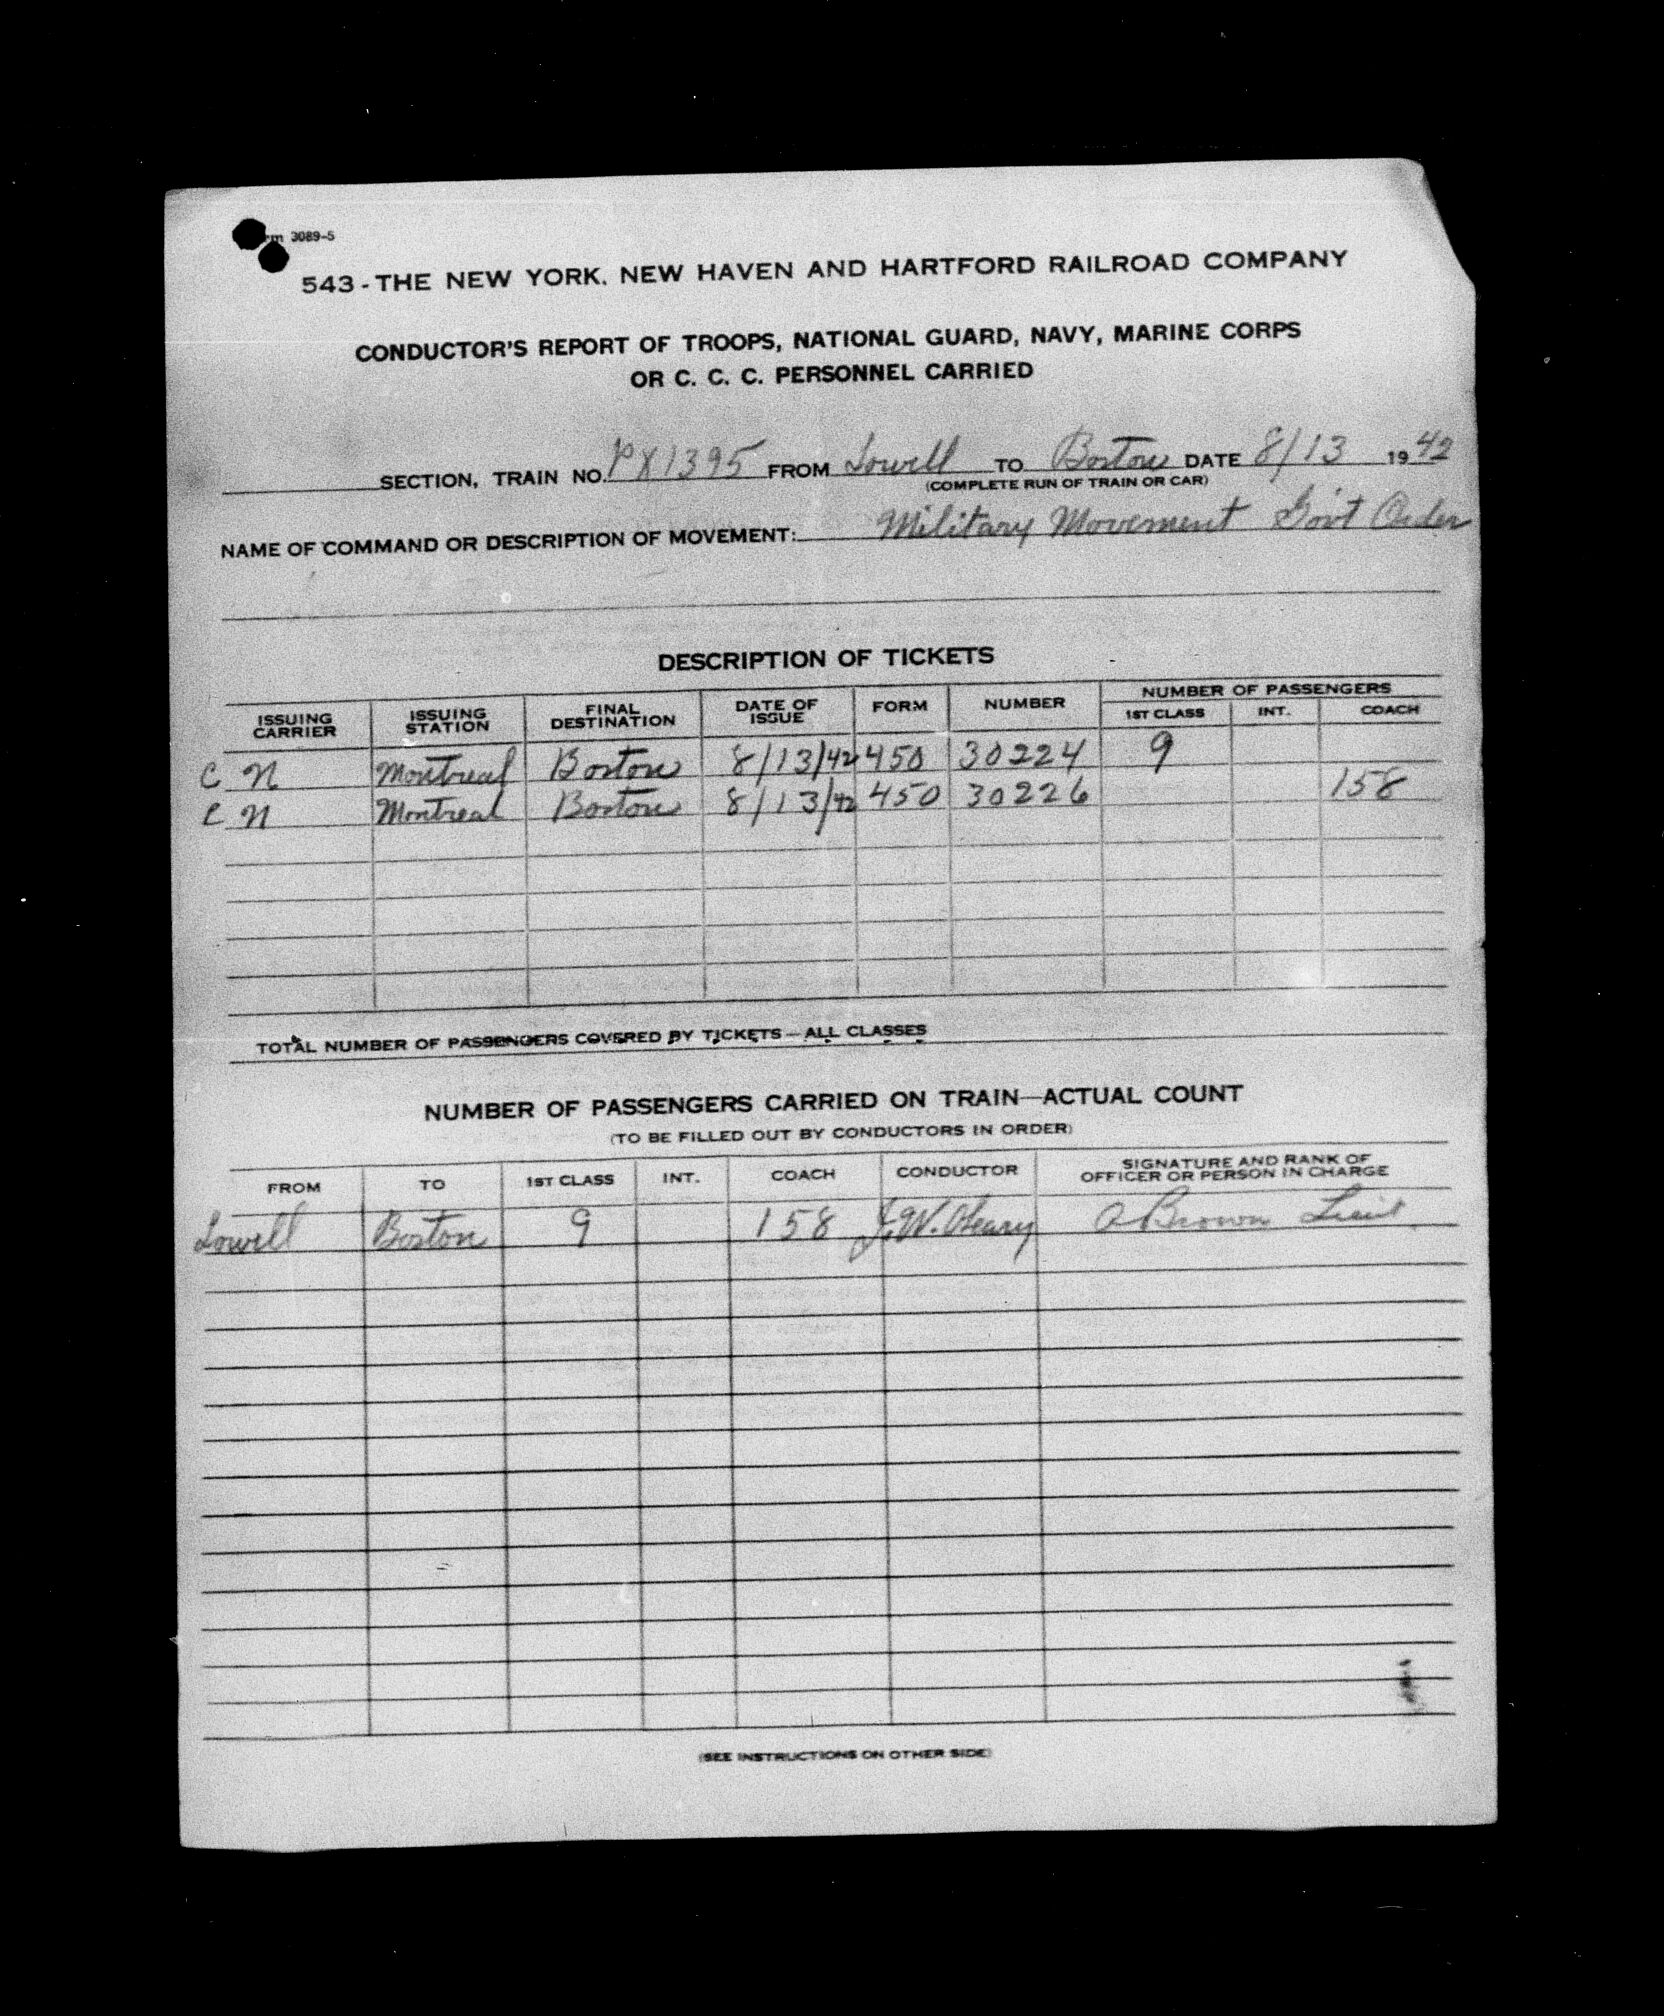 rm 3089-5
543 - THE NEW YORK, NEW HAVEN AND HARTFORD RAILROAD COMPANY
CONDUCTOR'S REPORT OF TROOPS, NATIONAL GUARD, NAVY, MARINE CORPS
OR C. C. C. PERSONNEL CARRIED
SECTION, TRAIN NO. PX1395 FROM Lowell TO Boston DATE 8/13 1942
(COMPLETE RUN OF TRAIN OR CAR)
NAME OF COMMAND OR DESCRIPTION OF MOVEMENT: Military Movement Gov't Order
DESCRIPTION OF TICKETS
ISSUING CARRIER ISSUING STATION FINAL DESTINATION DATE OF ISSUE FORM NUMBER NUMBER OF PASSENGERS
1ST CLASS INT. COACH
C N Montreal Boston 8/13/42 450 30224 9
C N Montreal Boston 8/13/42 450 30226 158
TOTAL NUMBER OF PASSENGERS COVERED BY TICKETS — ALL CLASSES
NUMBER OF PASSENGERS CARRIED ON TRAIN—ACTUAL COUNT
(TO BE FILLED OUT BY CONDUCTORS IN ORDER)
FROM TO 1ST CLASS INT. COACH CONDUCTOR SIGNATURE AND RANK OF OFFICER OR PERSON IN CHARGE
Lowell Boston 9 158 J.W. O'Leary A Brown Lieut.
(SEE INSTRUCTIONS ON OTHER SIDE)